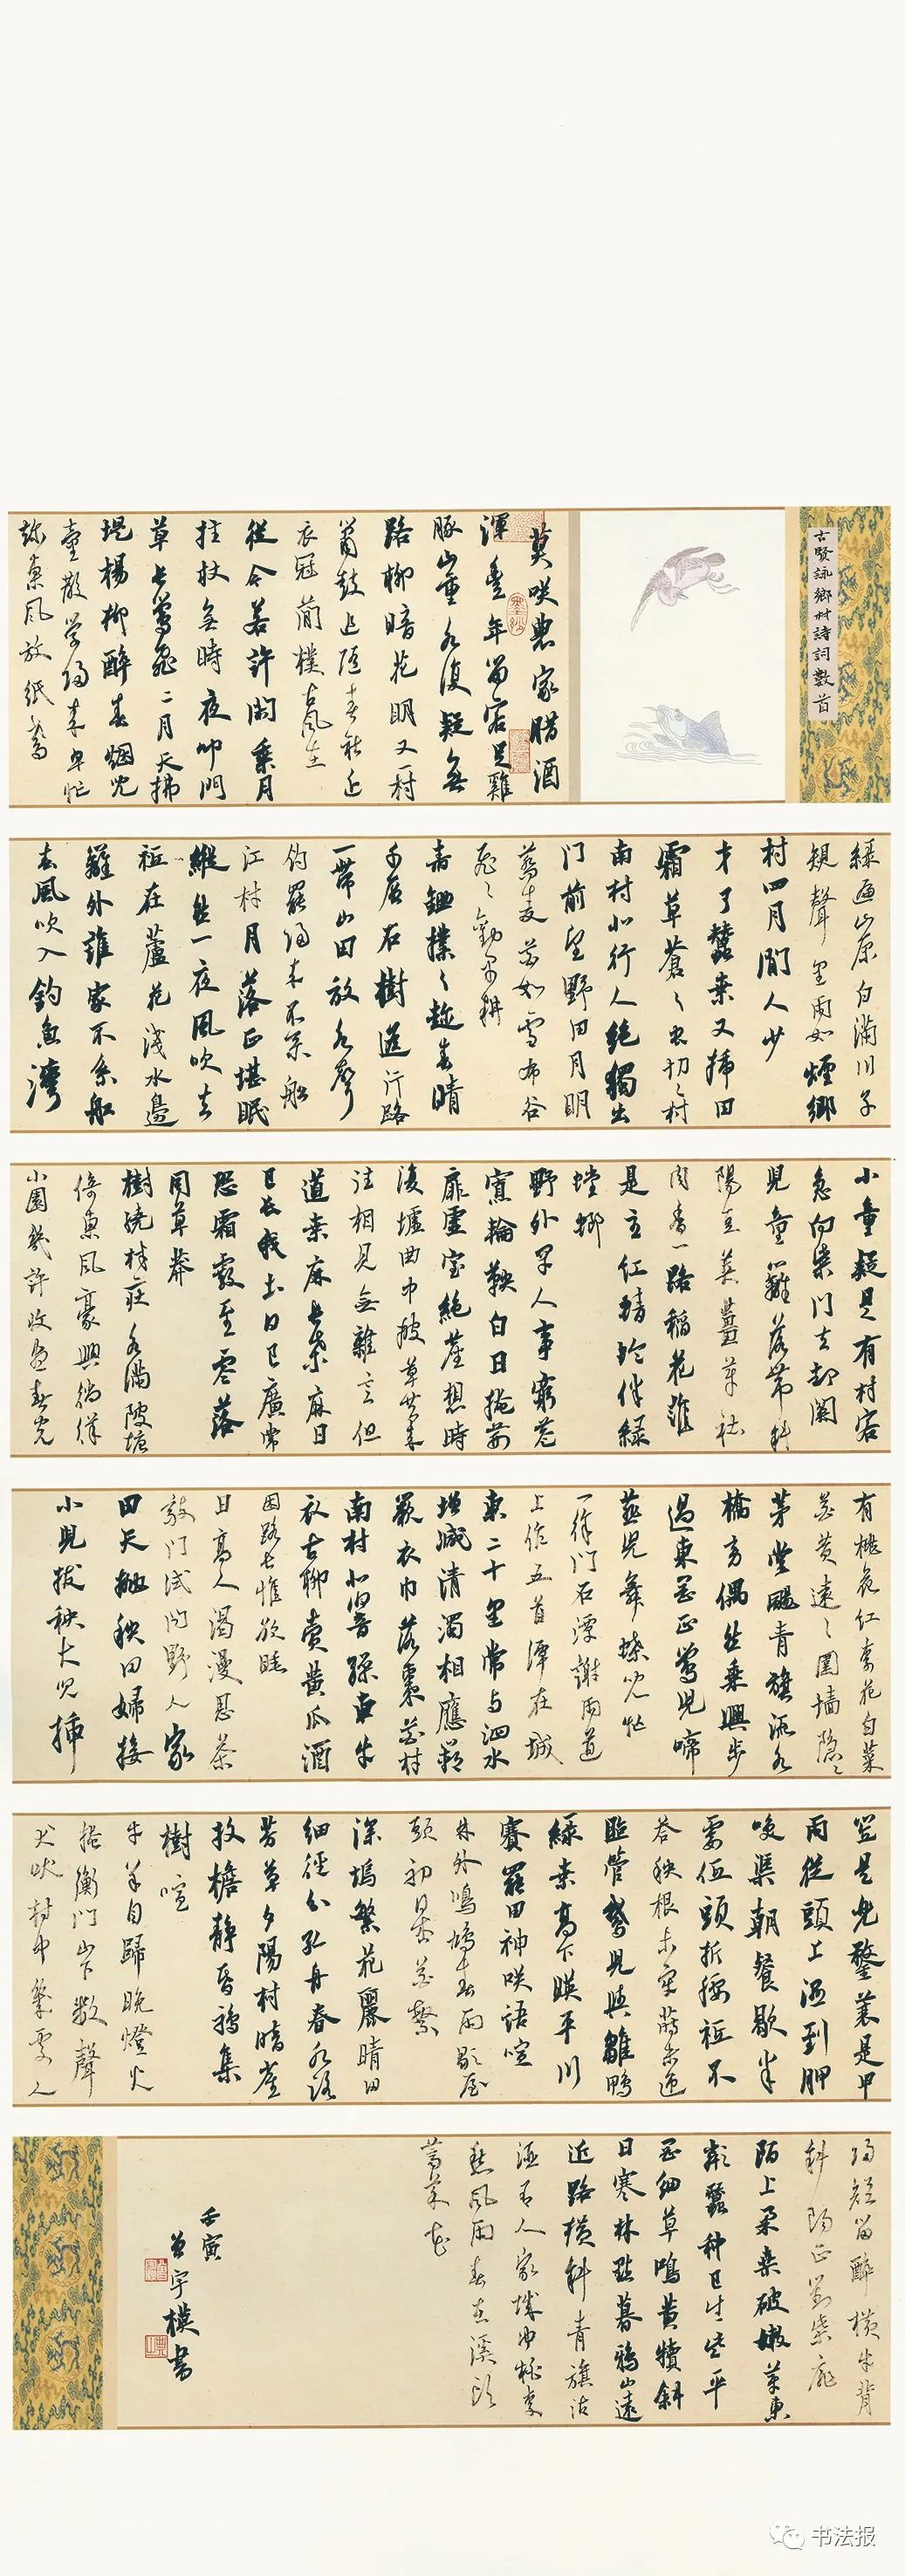 古賢詠鄉村詩詞數首
莫咲農家腊酒
渾豐年留客足雞
豚山重水復疑無
路柳暗花明又一村
簫鼓追隨春社近
衣冠簡樸古風存
從今若許閑乘月
拄杖無時夜叩門
草長鶯飛二月天拂
堤楊柳醉春烟兒
童散學歸來早忙
趁東風放紙鳶
綠遍山原白滿川子
規聲裏雨如煙鄉
村四月閒人少
才了蠶桑又插田
霜草蒼々虫切々村
南村北行人絕獨出
門前望野田月明
蕎麥花如雪布谷
飛々勸早耕
舂鋤撲々趁春晴
千層石樹遥行路
一帶山田放水聲
釣罷歸來不系船
江村月落正堪眠
縱然一夜風吹去
祇在蘆花淺水邊
籬外誰家不系船
春風吹入釣魚灣
小童疑是有村客
急向柴門去却関
兒童籬落帶斜
陽豆莢薑芽社
肉香一路稻花誰
是主红蜻蛉伴綠
螳螂
野外罕人事窮巷
寡輪鞅白日掩荆
扉虛室絕塵想時
復墟曲中披草共來
往相見無雜言但
道桑麻長桑麻日
已長我土日已廣常
恐霜霰至零落
同草莽
樹繞村莊水滿陂塘
倚東風豪興徜徉
小園幾許收盡春光
有桃花红李花白菜
花黄遠々圍墻隱々
茅堂颺青旗流水
橋旁偶然乘興步
過東岡正鶯兒啼
燕兒舞蝶兒忙
徐門石潭謝雨道
上作五首潭在城
東二十里常与泗水
增減清濁相應
蔌衣巾落棗花村
南村北響繰車牛
衣古柳賣黄瓜酒
困路長惟欲睡
日高人渴漫思茶
敲門試問野人家
田夫抛秧田婦接
小兒拔秧大兒插
笠是兜鍪蓑是甲
雨從頭上濕到胛
唤渠朝餐歇半
霎低頭折腰祇不
答秧根未牢蒔未迊
照管鵝兒與雛鴨
綠桑高下映平川
賽罷田神咲語喧
林外鳴鳩春雨歇屋
頭初日杏花繁
深塢繁花麗晴田
細徑分孔舟春水
芳草夕陽村暗
牧檐靜昏鴉集
樹喧
牛羊自歸晚燈火
掩衡門山下數聲
犬吠村中幾處人
歸短笛醉横牛背
斜陽正對柴扉
陌上柔桑破嫩芽東
鄰蠶種已生些平
岡細草鳴黄犢斜
日寒林點暮鴉山遠
近路横斜青旗沽
酒有人家城中桃李
愁風雨春在溪頭
薺菜花
壬寅
曾宇樸書
书法报